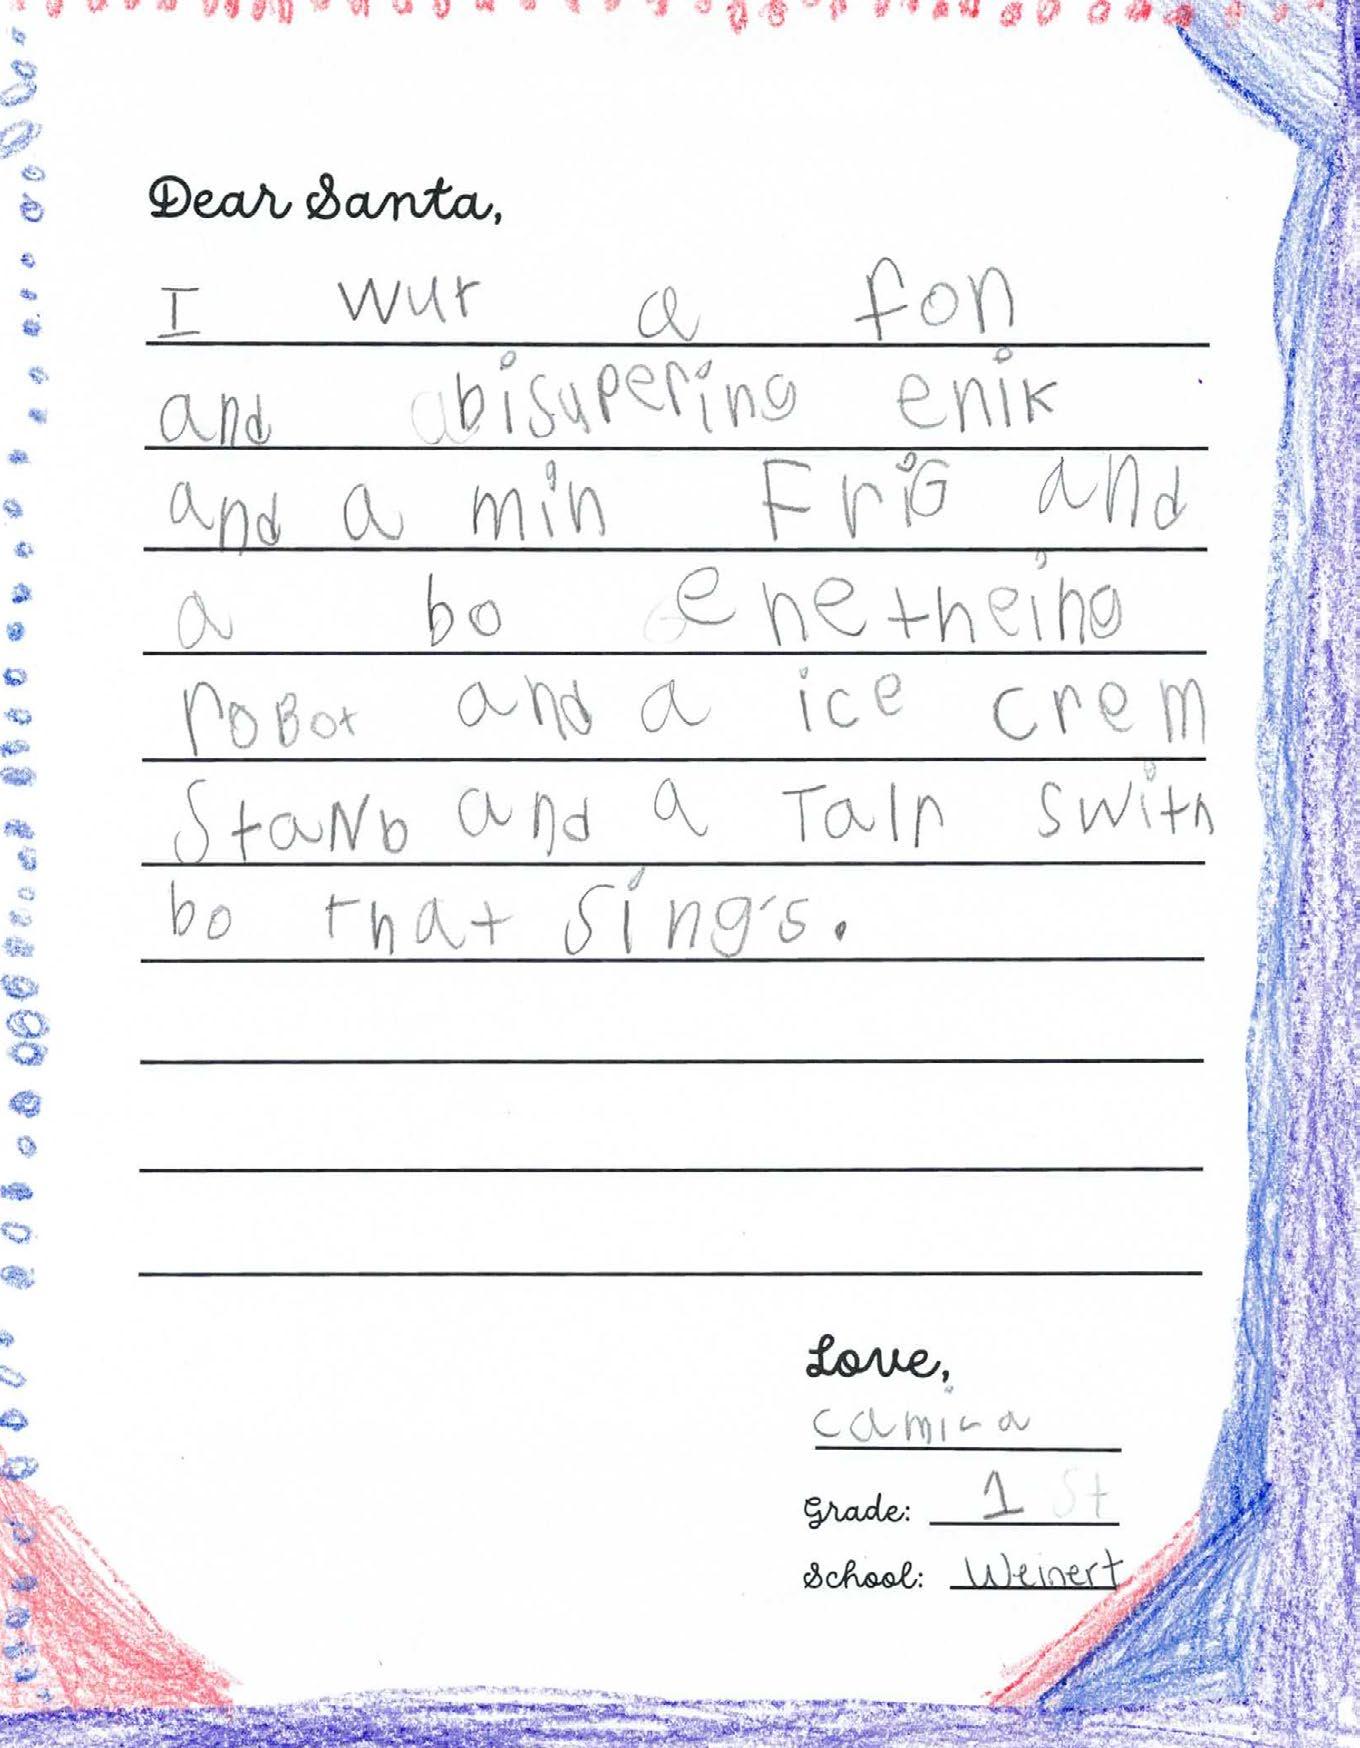 Dear Santa,
I wut a fon
and abisupering enik
and a min FriG and
a bo enetheing
roBot and a ice crem
StaNb and a Taln swith
bo that Sing's.
Love,
camila
Grade: 1 St
School: Weinert